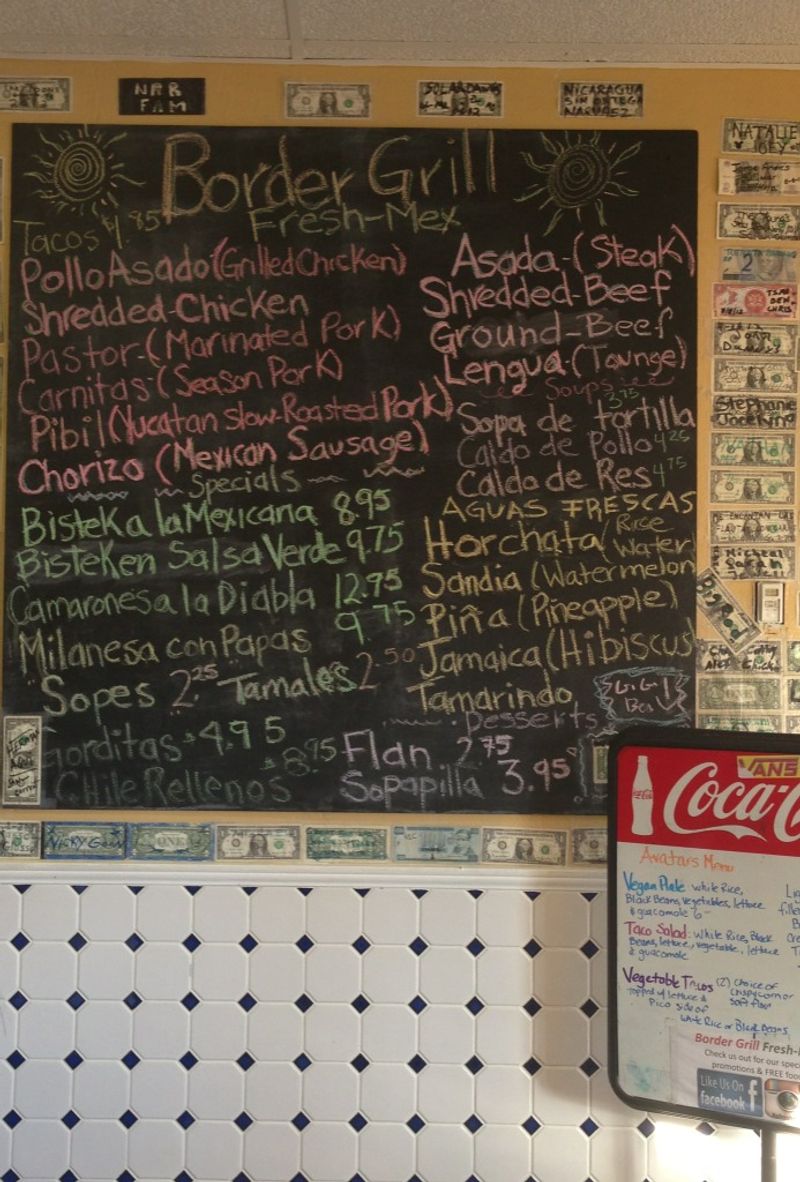 NRB
FAM
NICARAGUA
SIN ORTEGA
NATALIE
JOEY
Border Grill
Fresh-Mex
Tacos 1.85
Pollo Asado (Grilled Chicken)
Shredded-Chicken
Pastor-(Marinated Pork)
Carnitas-(Season Pork)
Pibil (Yucatan Slow-Roasted Pork)
Chorizo (Mexican Sausage)
Asada-(Steak)
Shredded-Beef
Ground-Beef
Lengua-(Tounge)
Soups
3.75
Sopa de tortilla
Caldo de Pollo 4.25
Caldo de Res 4.75
Specials
Bistek a la Mexicana 8.95
Bistek en Salsa Verde 9.75
Camarones a la Diabla 12.95
Milanesa con Papas 9.75
Sopes 2.25 Tamales 2.50
Gorditas 4.95
Chile Rellenos 8.95
AGUAS FRESCAS
Horchata (Rice
Water
Sandia (Watermelon
Piña (Pineapple)
Jamaica (Hibiscus
Tamarindo
Desserts
Flan 2.75
Sopapilla 3.95
Stephanie
Big Rod
NICKY
ONE
VANS
Coca-C
Avatars Menu
Vegan Plate white Rice,
Black Beans, vegetables, lettuce
& guacomole 6-
Taco Salad: White Rice, Black
Beans, lettuce, vegetable, lettuce
& guacomole
Vegetable Tacos (2) choice of
crispy corn or
soft flour
topped w/ lettuce &
Pico side of
White Rice or Black Beans
Border Grill Fresh-
Check us out for our spec
promotions & FREE foo
Like Us On
facebook f